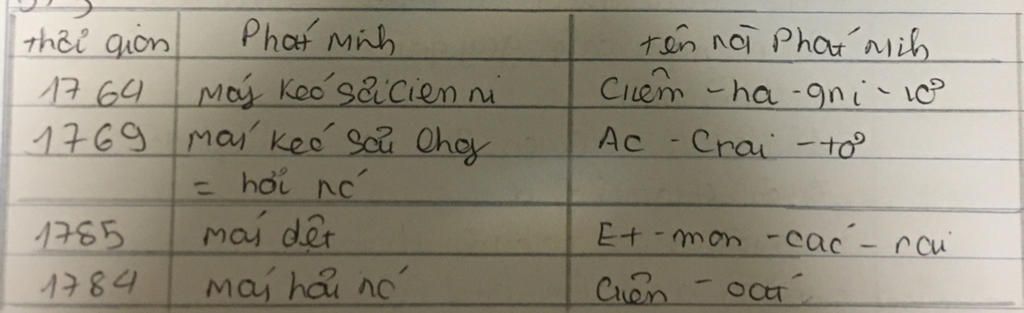 thời gian Phát Minh tên nơi Phát Minh
1764 máy kéo sợi Cien ni Ciêm - ha - gni - vơ
1769 mái kéo sợi Chạy AC - Crai - tơ
= hơi nc'
1785 mái dệt Et - mon - cac' - rai
1784 mái hơi nc' Ciên - oat'